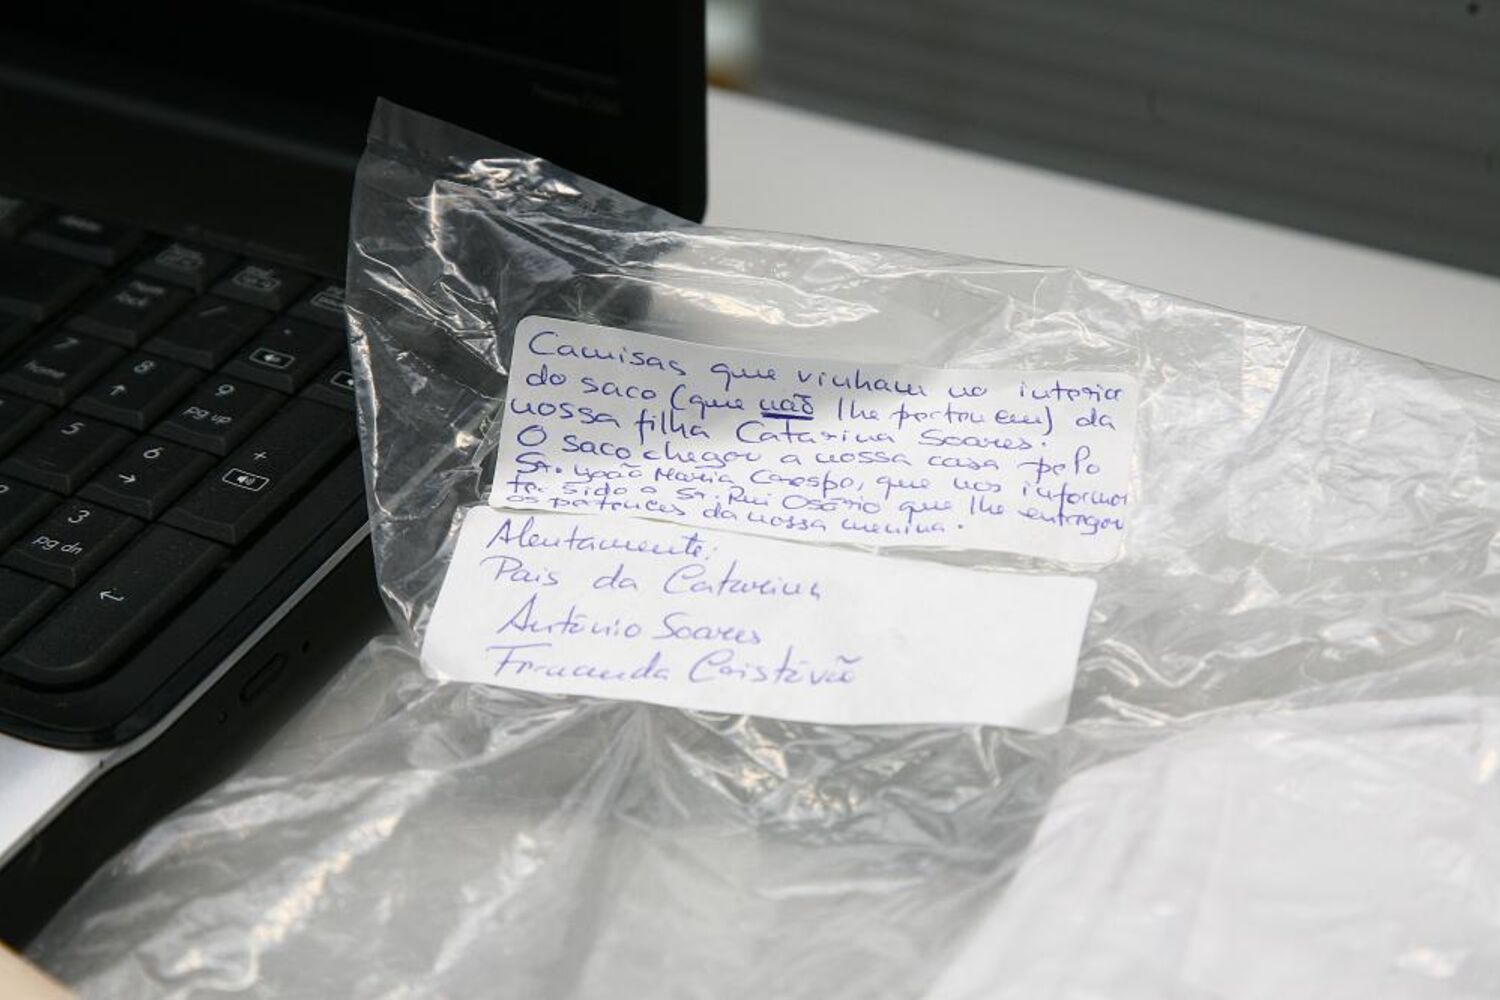 Camisas que vinham no interior
do saco (que não lhe pertencem) da
nossa filha Catarina Soares.
O saco chegou a nossa casa pelo
Sr. João Maria Crespo, que nos informou
ter sido o Sr. Rui Osório que lhe entregou
os pertences da nossa menina.
Atentamente:
Pais da Catarina
António Soares
Fernanda Cristóvão
7
home
8
9
pg up
5
6
+
3
pg dn